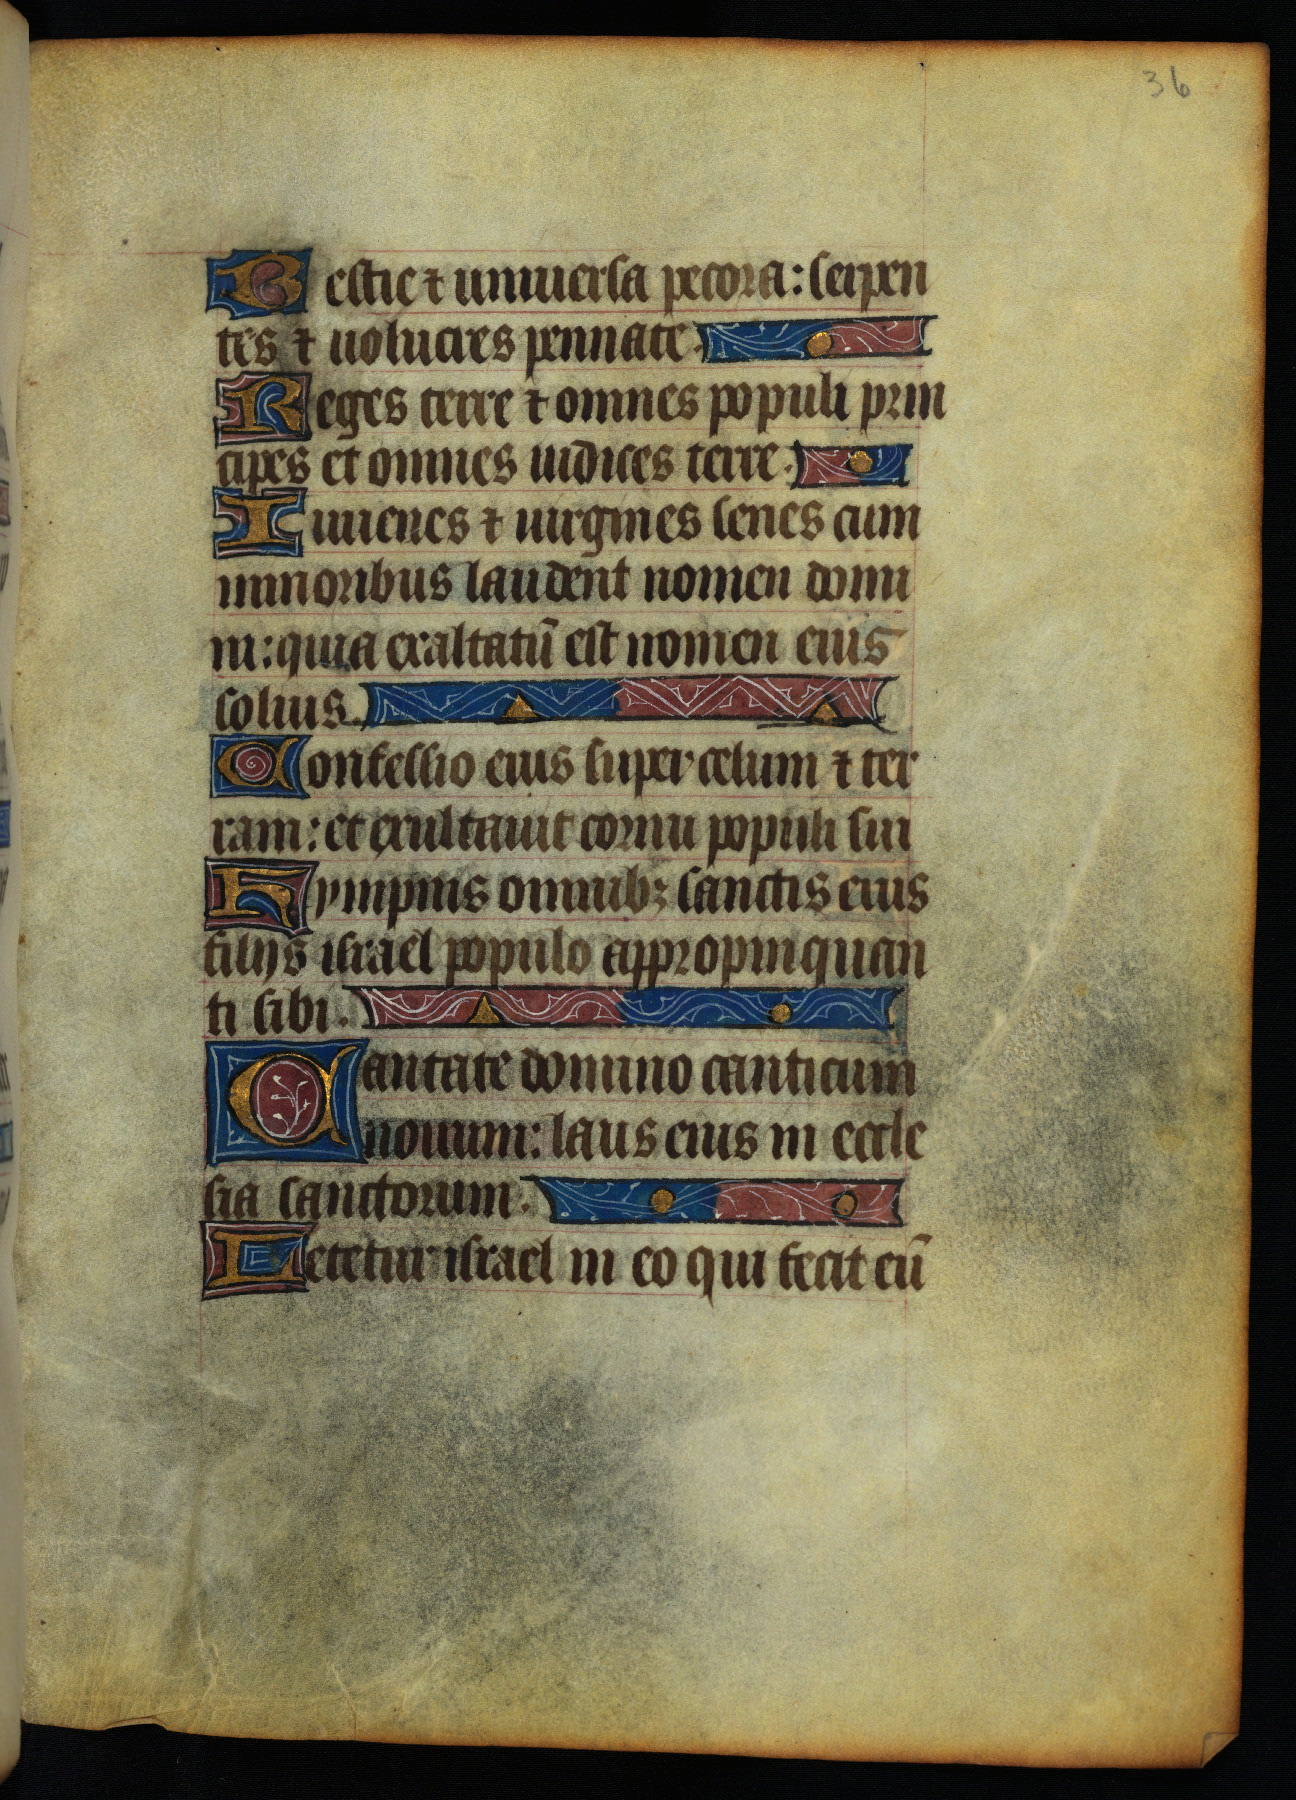 36
Bestie ⁊ uniuersa pecora: serpen
tes ⁊ uolucres pennate.
Reges terre ⁊ omnes populi prin
cipes et omnes iudices terre.
Iuuenes ⁊ uirgines senes cum
iunioribus laudent nomen domi
ni: quia exaltatū est nomen eius
solius.
Confessio eius super celum ⁊ ter
ram: et exultauit cornu populi sui
Hympnis omnibꝫ sanctis eius
filijs israel populo appropinquan
ti sibi.
Cantate domino canticum
nouum: laus eius in eccle
sia sanctorum.
Letetur israel in eo qui fecit eū